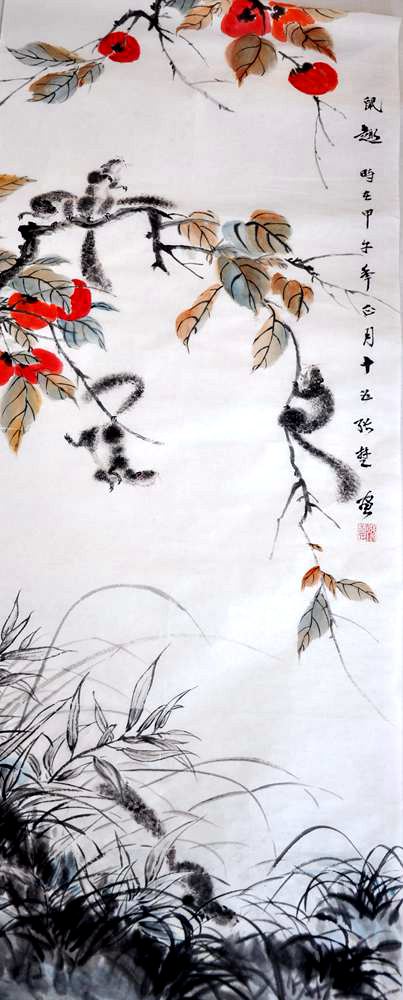 鼠趣 時在甲午年正月十五张楚